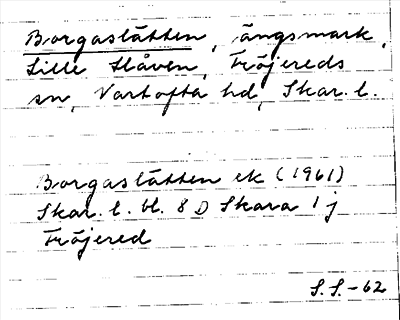 Borgastätten, ängsmark,
Lille Håven, Fröjereds
sn, Vartofta hd, Skar. l.
Borgastätten ek (1961)
Skar. l. bl. 8 D Skara 1 j
Fröjered
S.S.-62